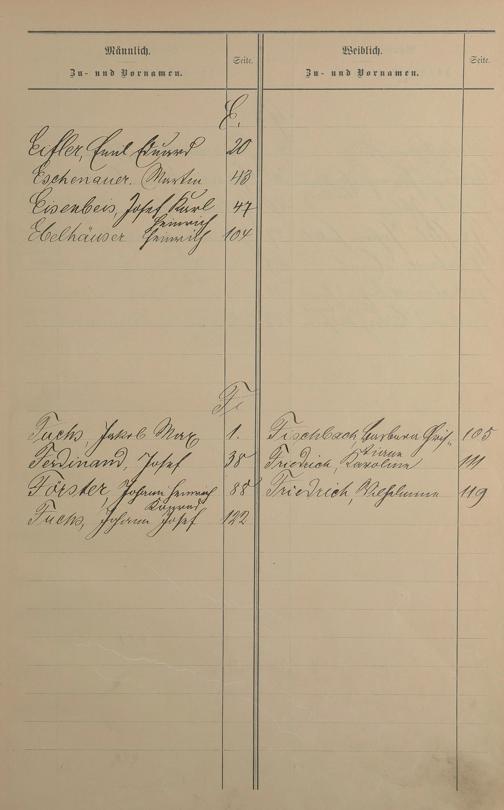 Männlich.
Zu- und Vornamen.
Seite.
Weiblich.
Zu- und Vornamen.
Seite.
E.
Eifler, Emil Eduard 20
Eschenauer. Martin 43
Eisenbeis, Josef Karl 47
Heinrich
Ebelhäuser Heinrich 104
F.
Fuchs, Jakob Max 1.
Fischbach, Barbara 105
Ferdinand, Josef 38
Friedrich, Karoline 111
Förster, Johann Heinrich 88
Friedrich, Wilhelmine 119
Konrad
Fuchs, Johann Josef 122